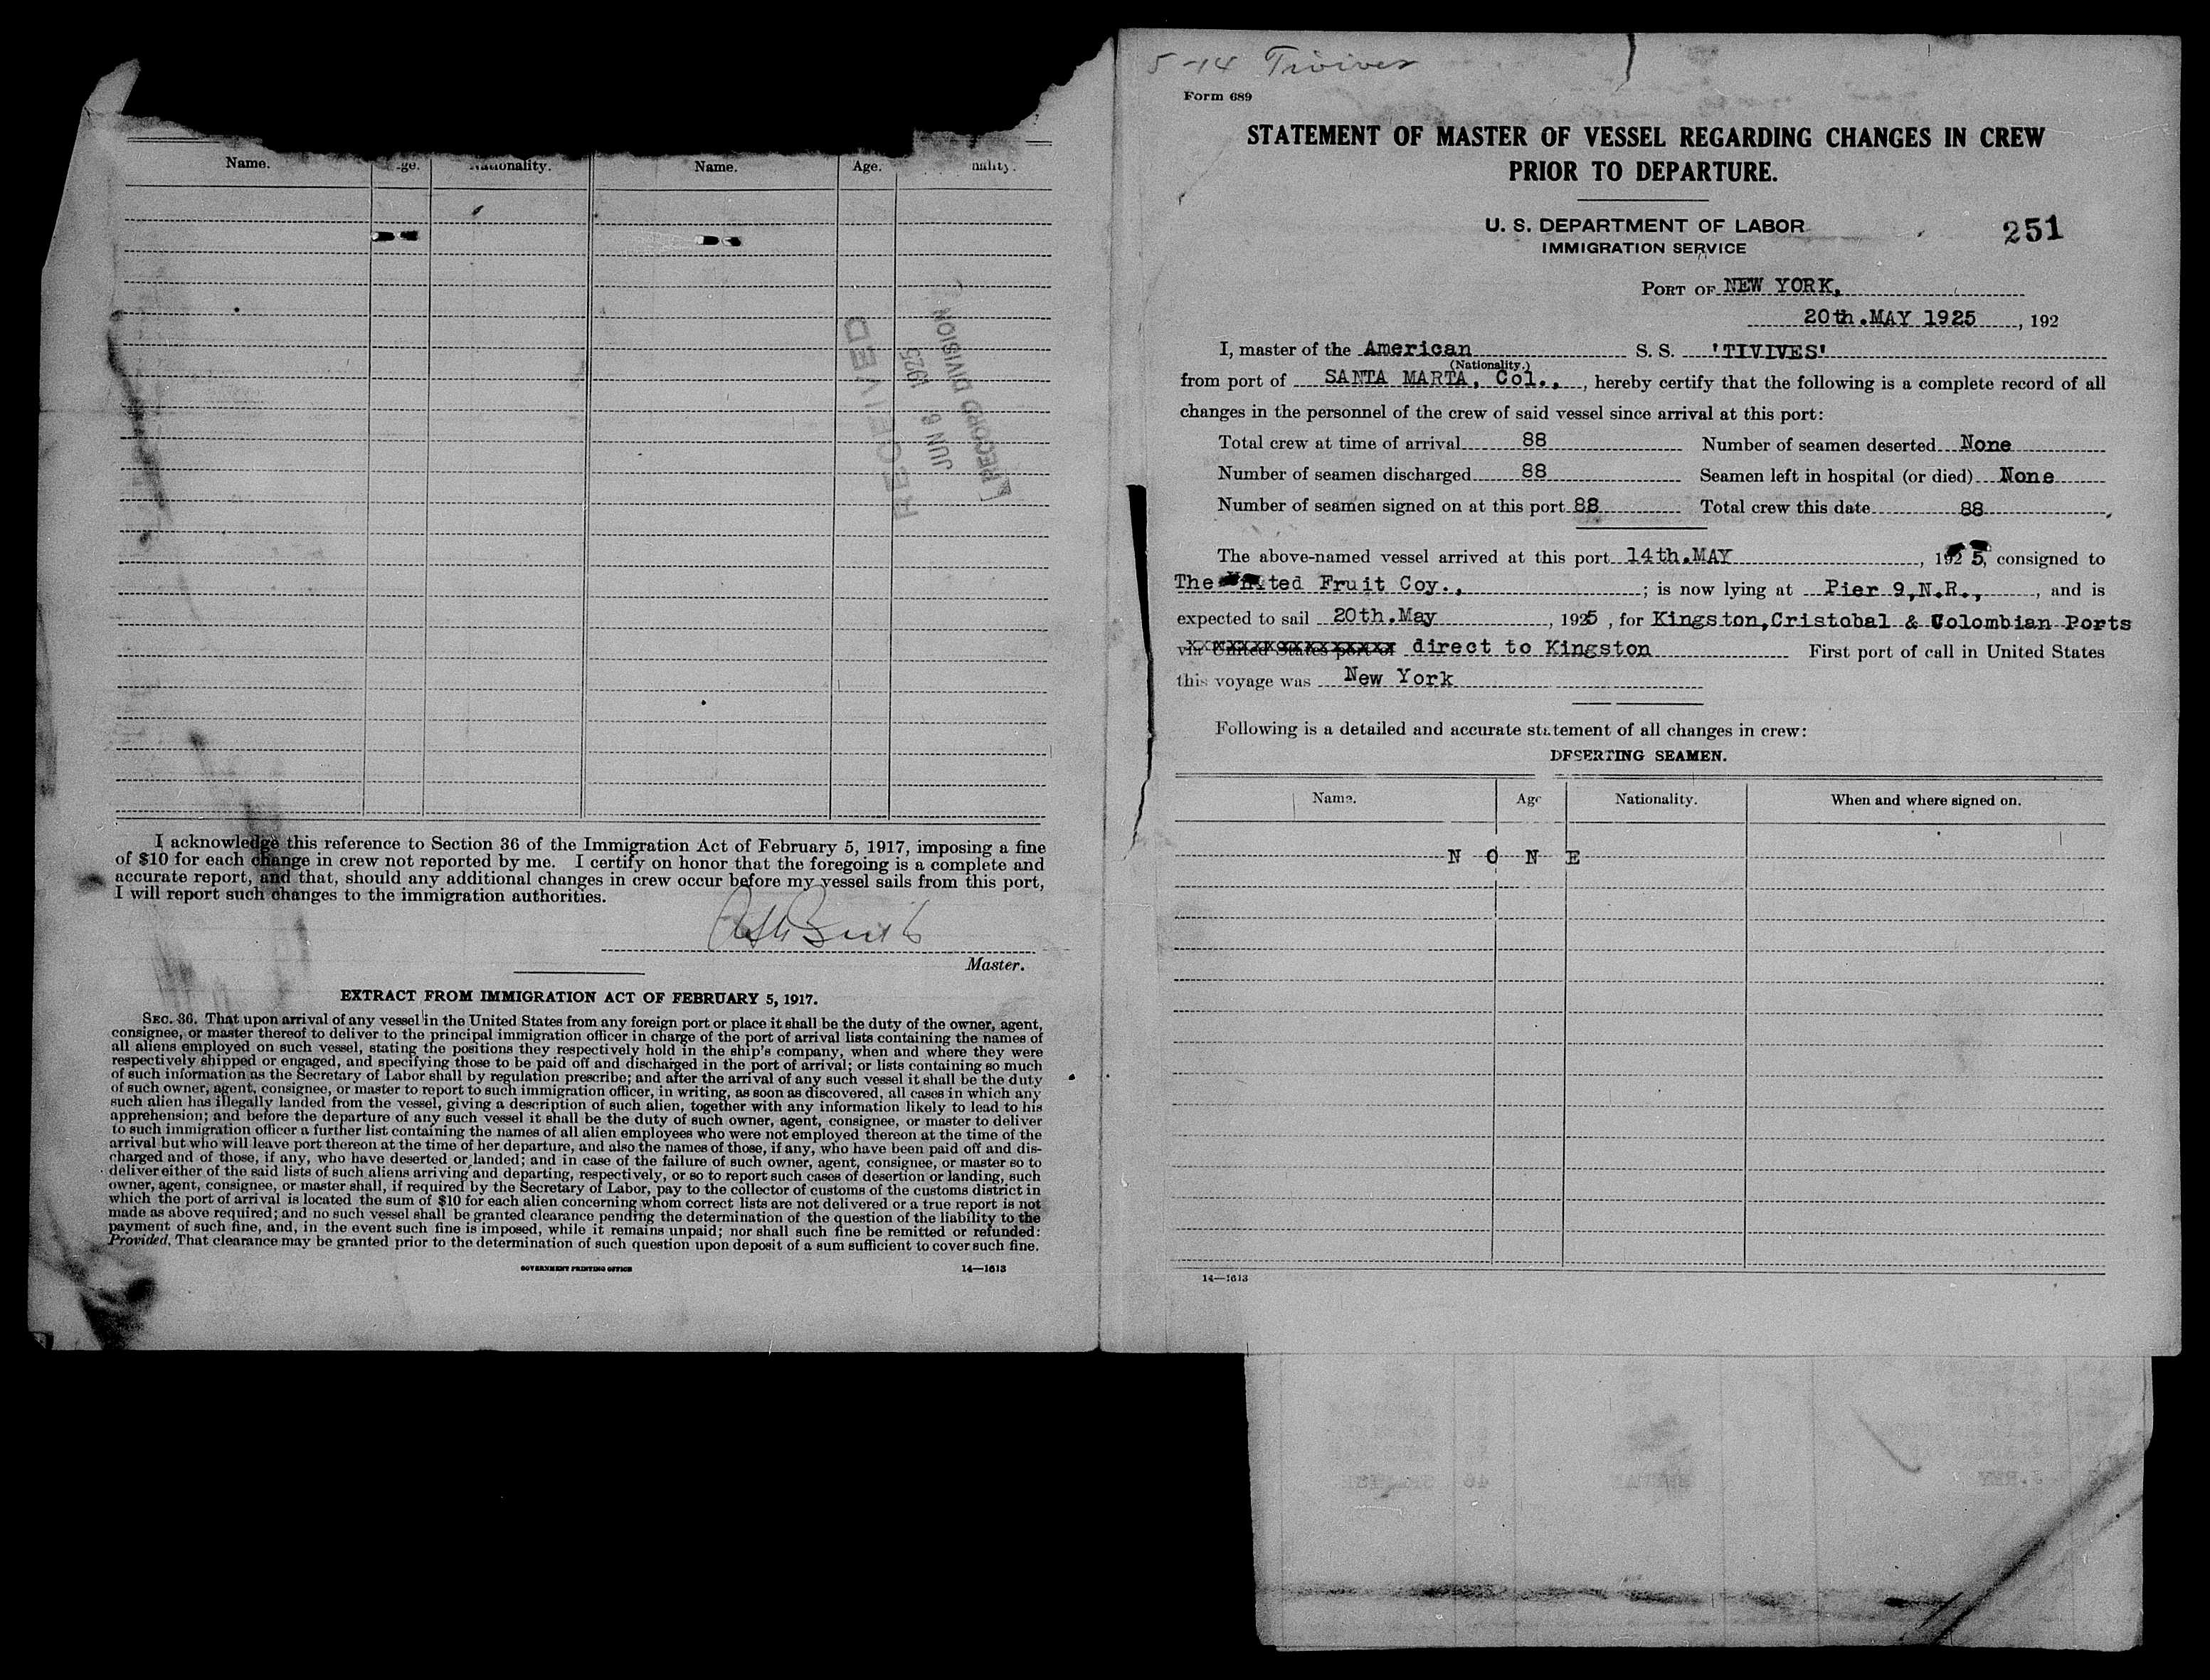 Name.
Age.
Name.
Age.
RECEIVED
JUN 6 1925
RECORD DIVISION
I acknowledge this reference to Section 36 of the Immigration Act of February 5, 1917, imposing a fine
of $10 for each change in crew not reported by me. I certify on honor that the foregoing is a complete and
accurate report, and that, should any additional changes in crew occur before my vessel sails from this port,
I will report such changes to the immigration authorities.
Master.
EXTRACT FROM IMMIGRATION ACT OF FEBRUARY 5, 1917.
SEC. 36. That upon arrival of any vessel in the United States from any foreign port or place it shall be the duty of the owner, agent,
consignee, or master thereof to deliver to the principal immigration officer in charge of the port of arrival lists containing the names of
all aliens employed on such vessel, stating the positions they respectively hold in the ship's company, when and where they were
respectively shipped or engaged, and specifying those to be paid off and discharged in the port of arrival; or lists containing so much
of such information as the Secretary of Labor shall by regulation prescribe; and after the arrival of any such vessel it shall be the duty
of such owner, agent, consignee, or master to report to such immigration officer, in writing, as soon as discovered, all cases in which any
such alien has illegally landed from the vessel, giving a description of such alien, together with any information likely to lead to his
apprehension; and before the departure of any such vessel it shall be the duty of such owner, agent, consignee, or master to deliver
to such immigration officer a further list containing the names of all alien employees who were not employed thereon at the time of the
arrival but who will leave port thereon at the time of her departure, and also the names of those, if any, who have been paid off and dis-
charged and of those, if any, who have deserted or landed; and in case of the failure of such owner, agent, consignee, or master so to
deliver either of the said lists of such aliens arriving and departing, respectively, or so to report such cases of desertion or landing, such
owner, agent, consignee, or master shall, if required by the Secretary of Labor, pay to the collector of customs of the customs district in
which the port of arrival is located the sum of $10 for each alien concerning whom correct lists are not delivered or a true report is not
made as above required; and no such vessel shall be granted clearance pending the determination of the question of the liability to the
payment of such fine, and, in the event such fine is imposed, while it remains unpaid; nor shall such fine be remitted or refunded:
Provided, That clearance may be granted prior to the determination of such question upon deposit of a sum sufficient to cover such fine.
GOVERNMENT PRINTING OFFICE 14—1613
5-14 Tivives
Form 689
STATEMENT OF MASTER OF VESSEL REGARDING CHANGES IN CREW
PRIOR TO DEPARTURE.
U. S. DEPARTMENT OF LABOR
IMMIGRATION SERVICE
251
PORT OF NEW YORK,
20th.MAY 1925, 192
I, master of the American S. S. 'TIVIVES'
(Nationality.)
from port of SANTA MARTA, Col., , hereby certify that the following is a complete record of all
changes in the personnel of the crew of said vessel since arrival at this port:
Total crew at time of arrival 88 Number of seamen deserted None
Number of seamen discharged 88 Seamen left in hospital (or died) None
Number of seamen signed on at this port 88 Total crew this date 88
The above-named vessel arrived at this port 14th.MAY , 1925, consigned to
The United Fruit Coy., ; is now lying at Pier 9,N.R., , and is
expected to sail 20th.May , 1925 , for Kingston,Cristobal & Colombian Ports
via United States port of direct to Kingston First port of call in United States
this voyage was New York
Following is a detailed and accurate statement of all changes in crew:
DESERTING SEAMEN.
Name. Age Nationality. When and where signed on.
N O N E
14—1613